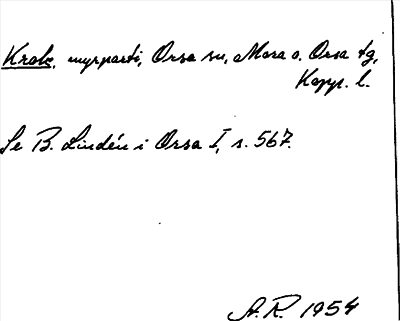 Krak, myrparti, Orsa sn, Mora o. Orsa tg,
Kopp. l.
Se B. Lindén i Orsa I, s. 567.
A.R. 1954